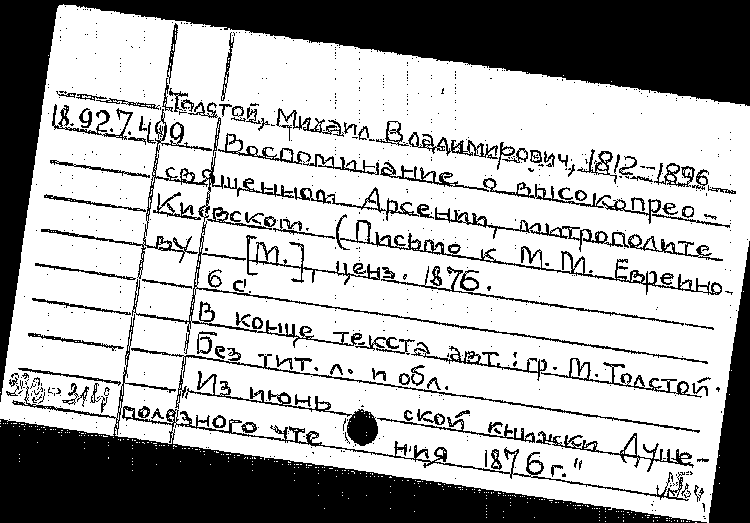 Толстой, Михаил Владимирович, 1812-1896
18.92.7.499
Воспоминание о высокопрео-
священном Арсении, митрополите
Киевском. (Письмо к М. М. Евреино-
ву). [М.], ценз. 1876.
6 с.
В конце текста авт.: гр. М. Толстой.
Без тит. л. и обл.
"Из июньской книжки Душе-
полезного чтения 1876 г."